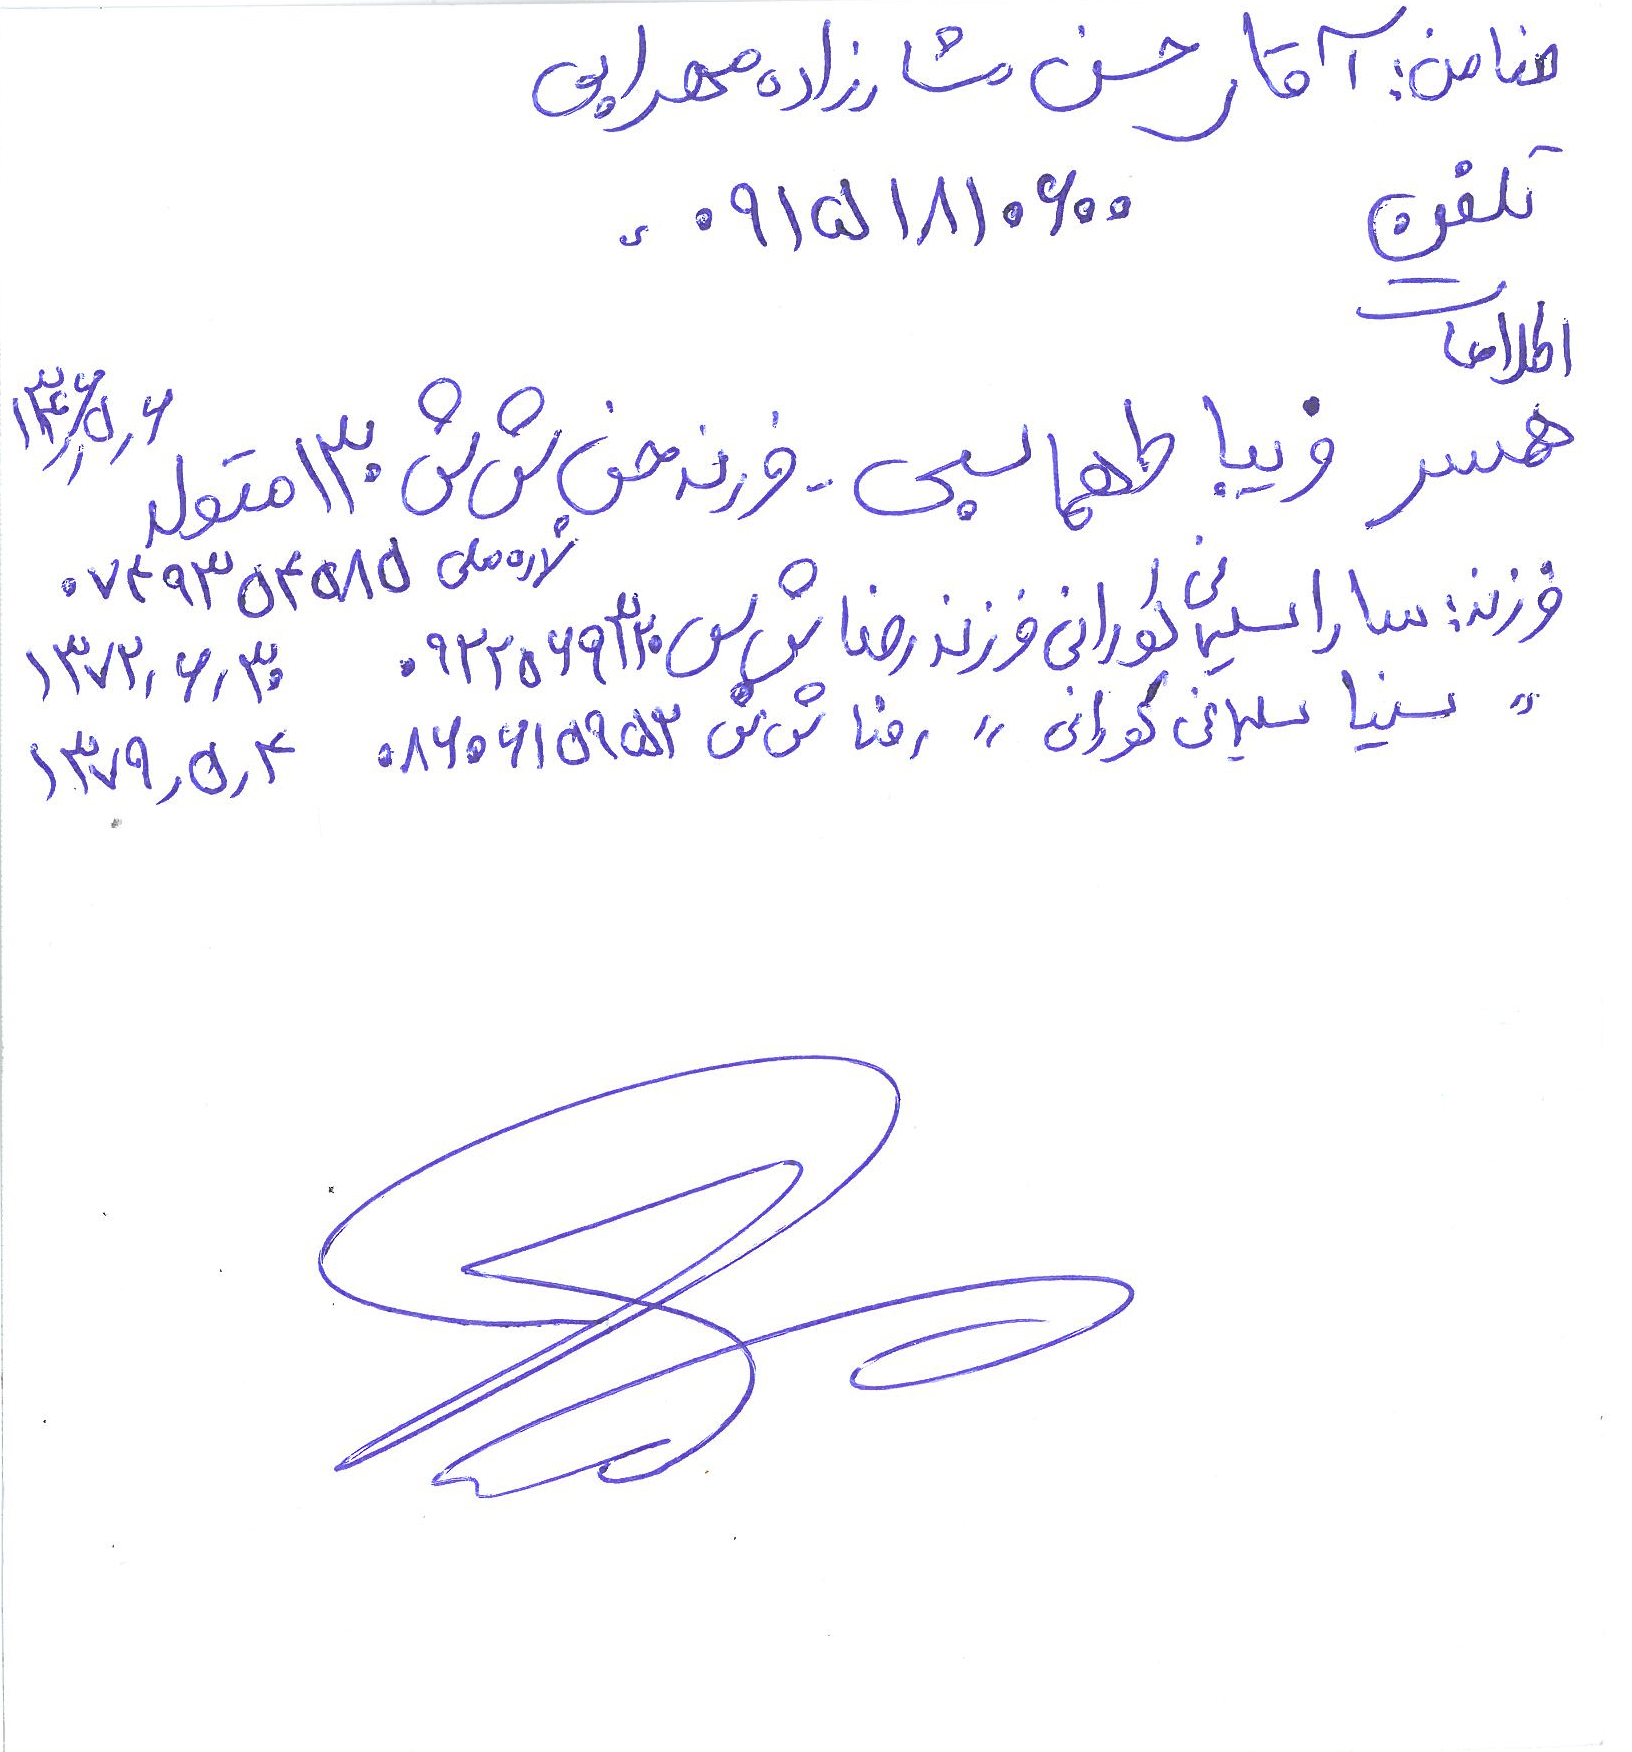 ضامن: آقای حسن مشارزاده مهرابی
تلفن ۰۹۱۵۱۸۱۰۶۰۰
اطلاعات
همسر فریبا طهماسبی - فرزند حسن ش ش ۱۳۰ متولد ۱۳۴۶/۵/۶
شماره ملی ۰۷۴۹۳۵۴۵۸۵
فرزند: سارا سلیمانی کورانی فرزند رضا ش ش ۱۳۷۲/۶/۳۰
" سینا سلیمانی کورانی " رضا ش ش ۰۸۶۰۶۱۵۹۵۳ ۱۳۷۹/۵/۴